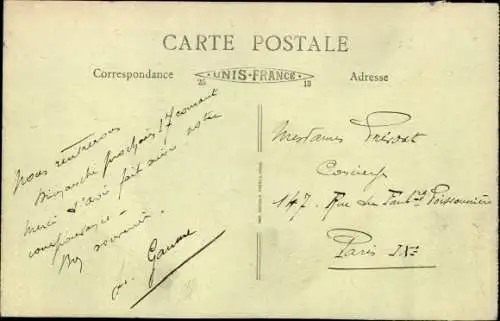 CARTE POSTALE
Correspondance
25 UNIS-FRANCE 13
Adresse
Nous rentrerons
Dimanche prochain 17 courant
Merci d'avoir fait suivre notre
correspondance
Bon souvenir
Gaume
Mesdames Prévost
Concierge
147. Rue du Faubg Poissonnière
Paris IXe